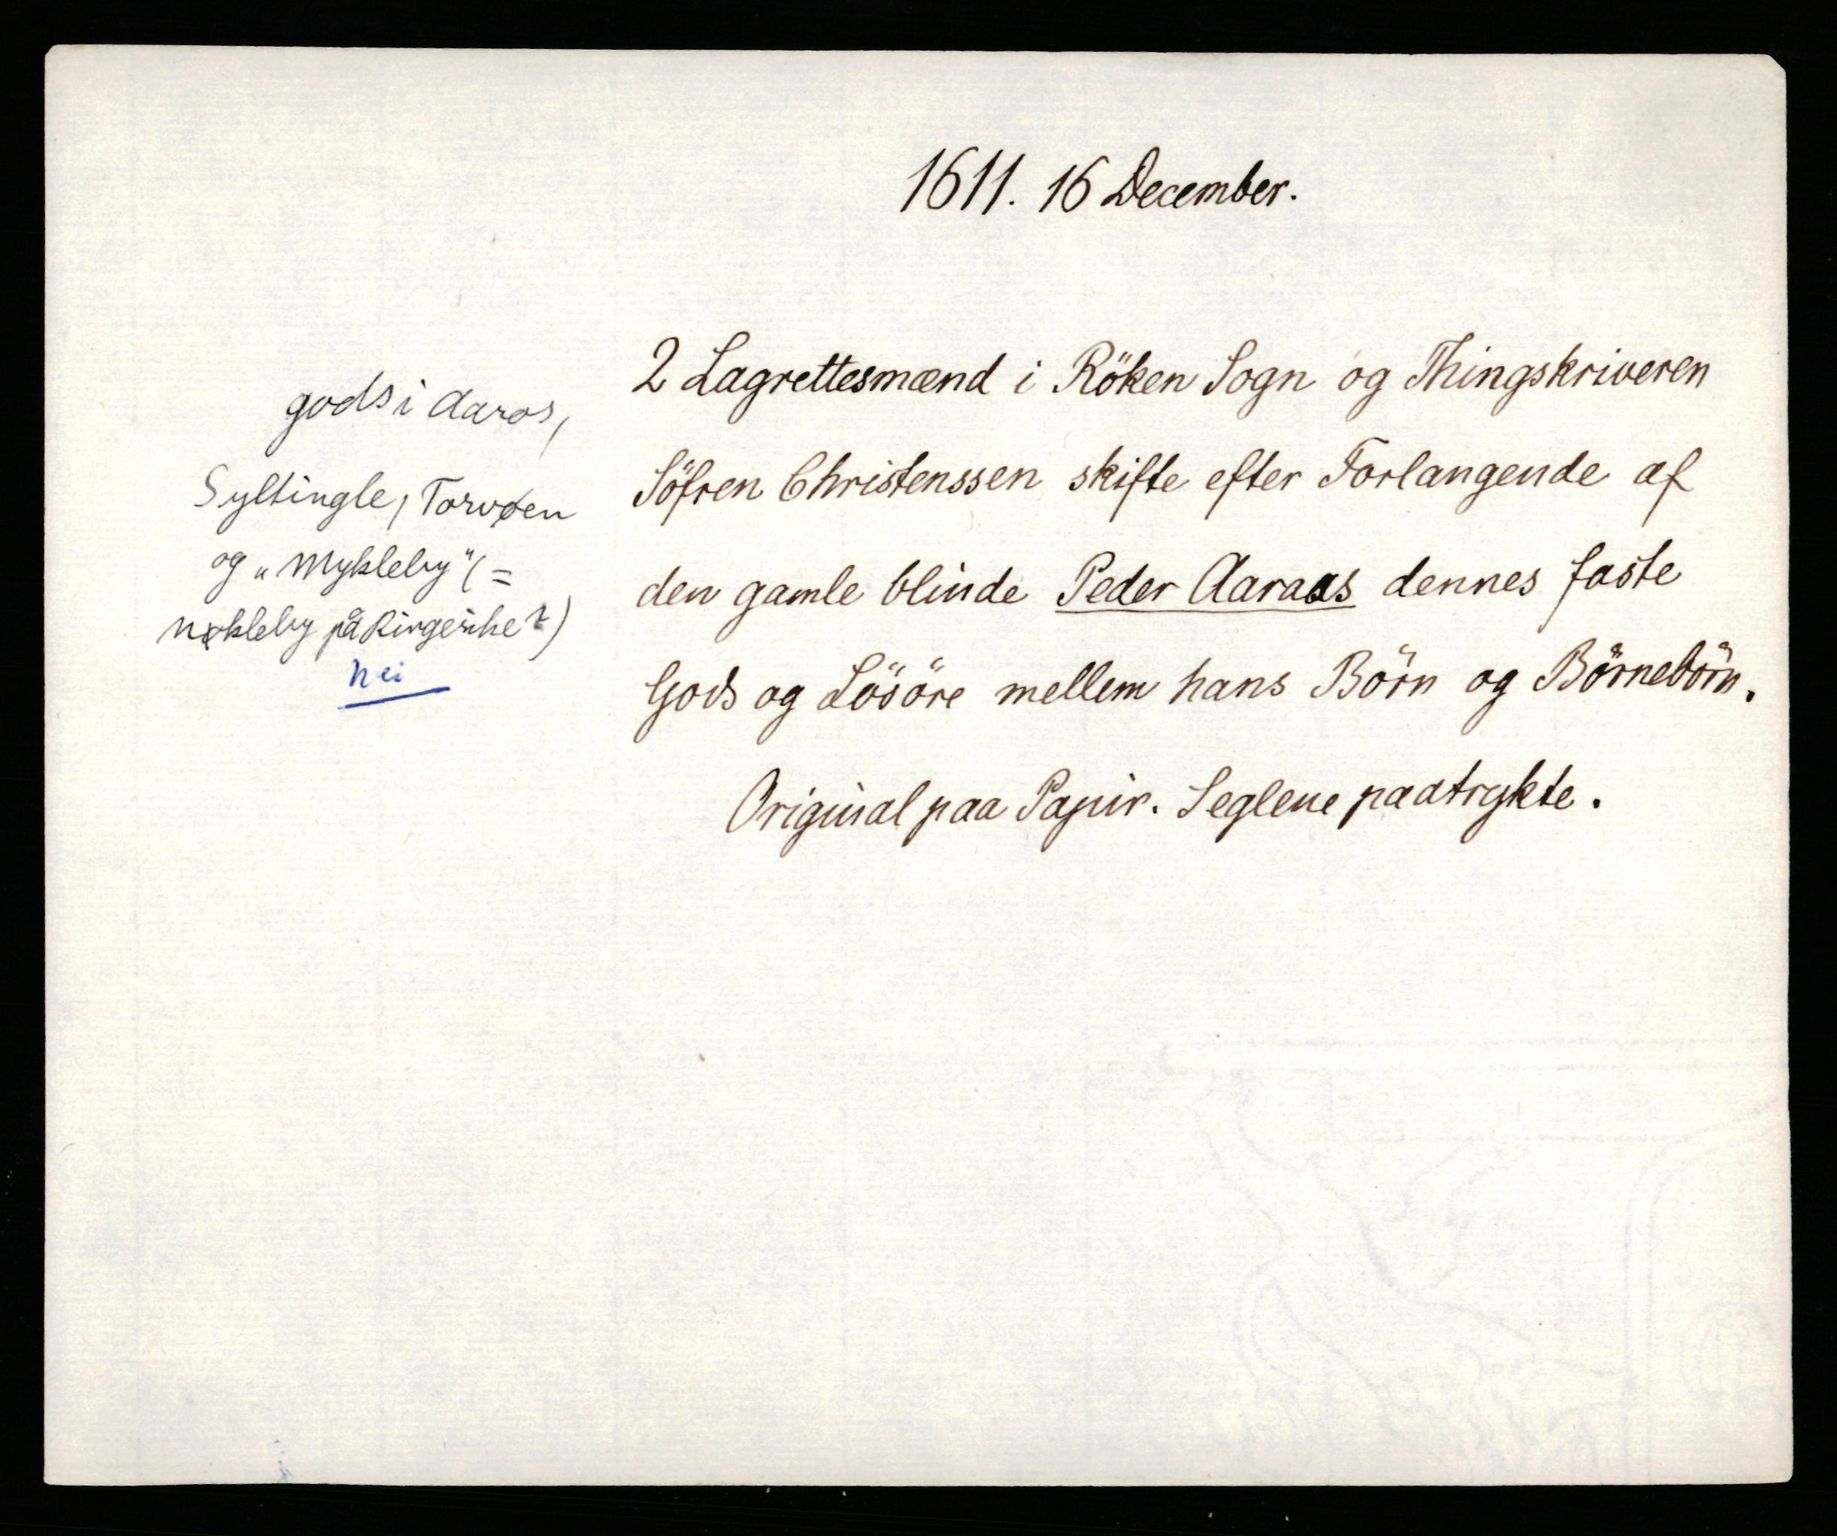 1611. 16 December.
2 Lagrettesmænd i Röken Sogn og Thingskriveren
Söfren Christenssen skifte efter Forlangende af
den gamle blinde Peder Aaraas dennes faste
Gods og Lösöre mellem hans Börn og Börnebörn.
Original paa Papir. Seglene paatrykte.
gods i Aaros,
Syltingle, Torvøen
og „Mykleby" (=
Nøkleby på Ringerike?)
nei